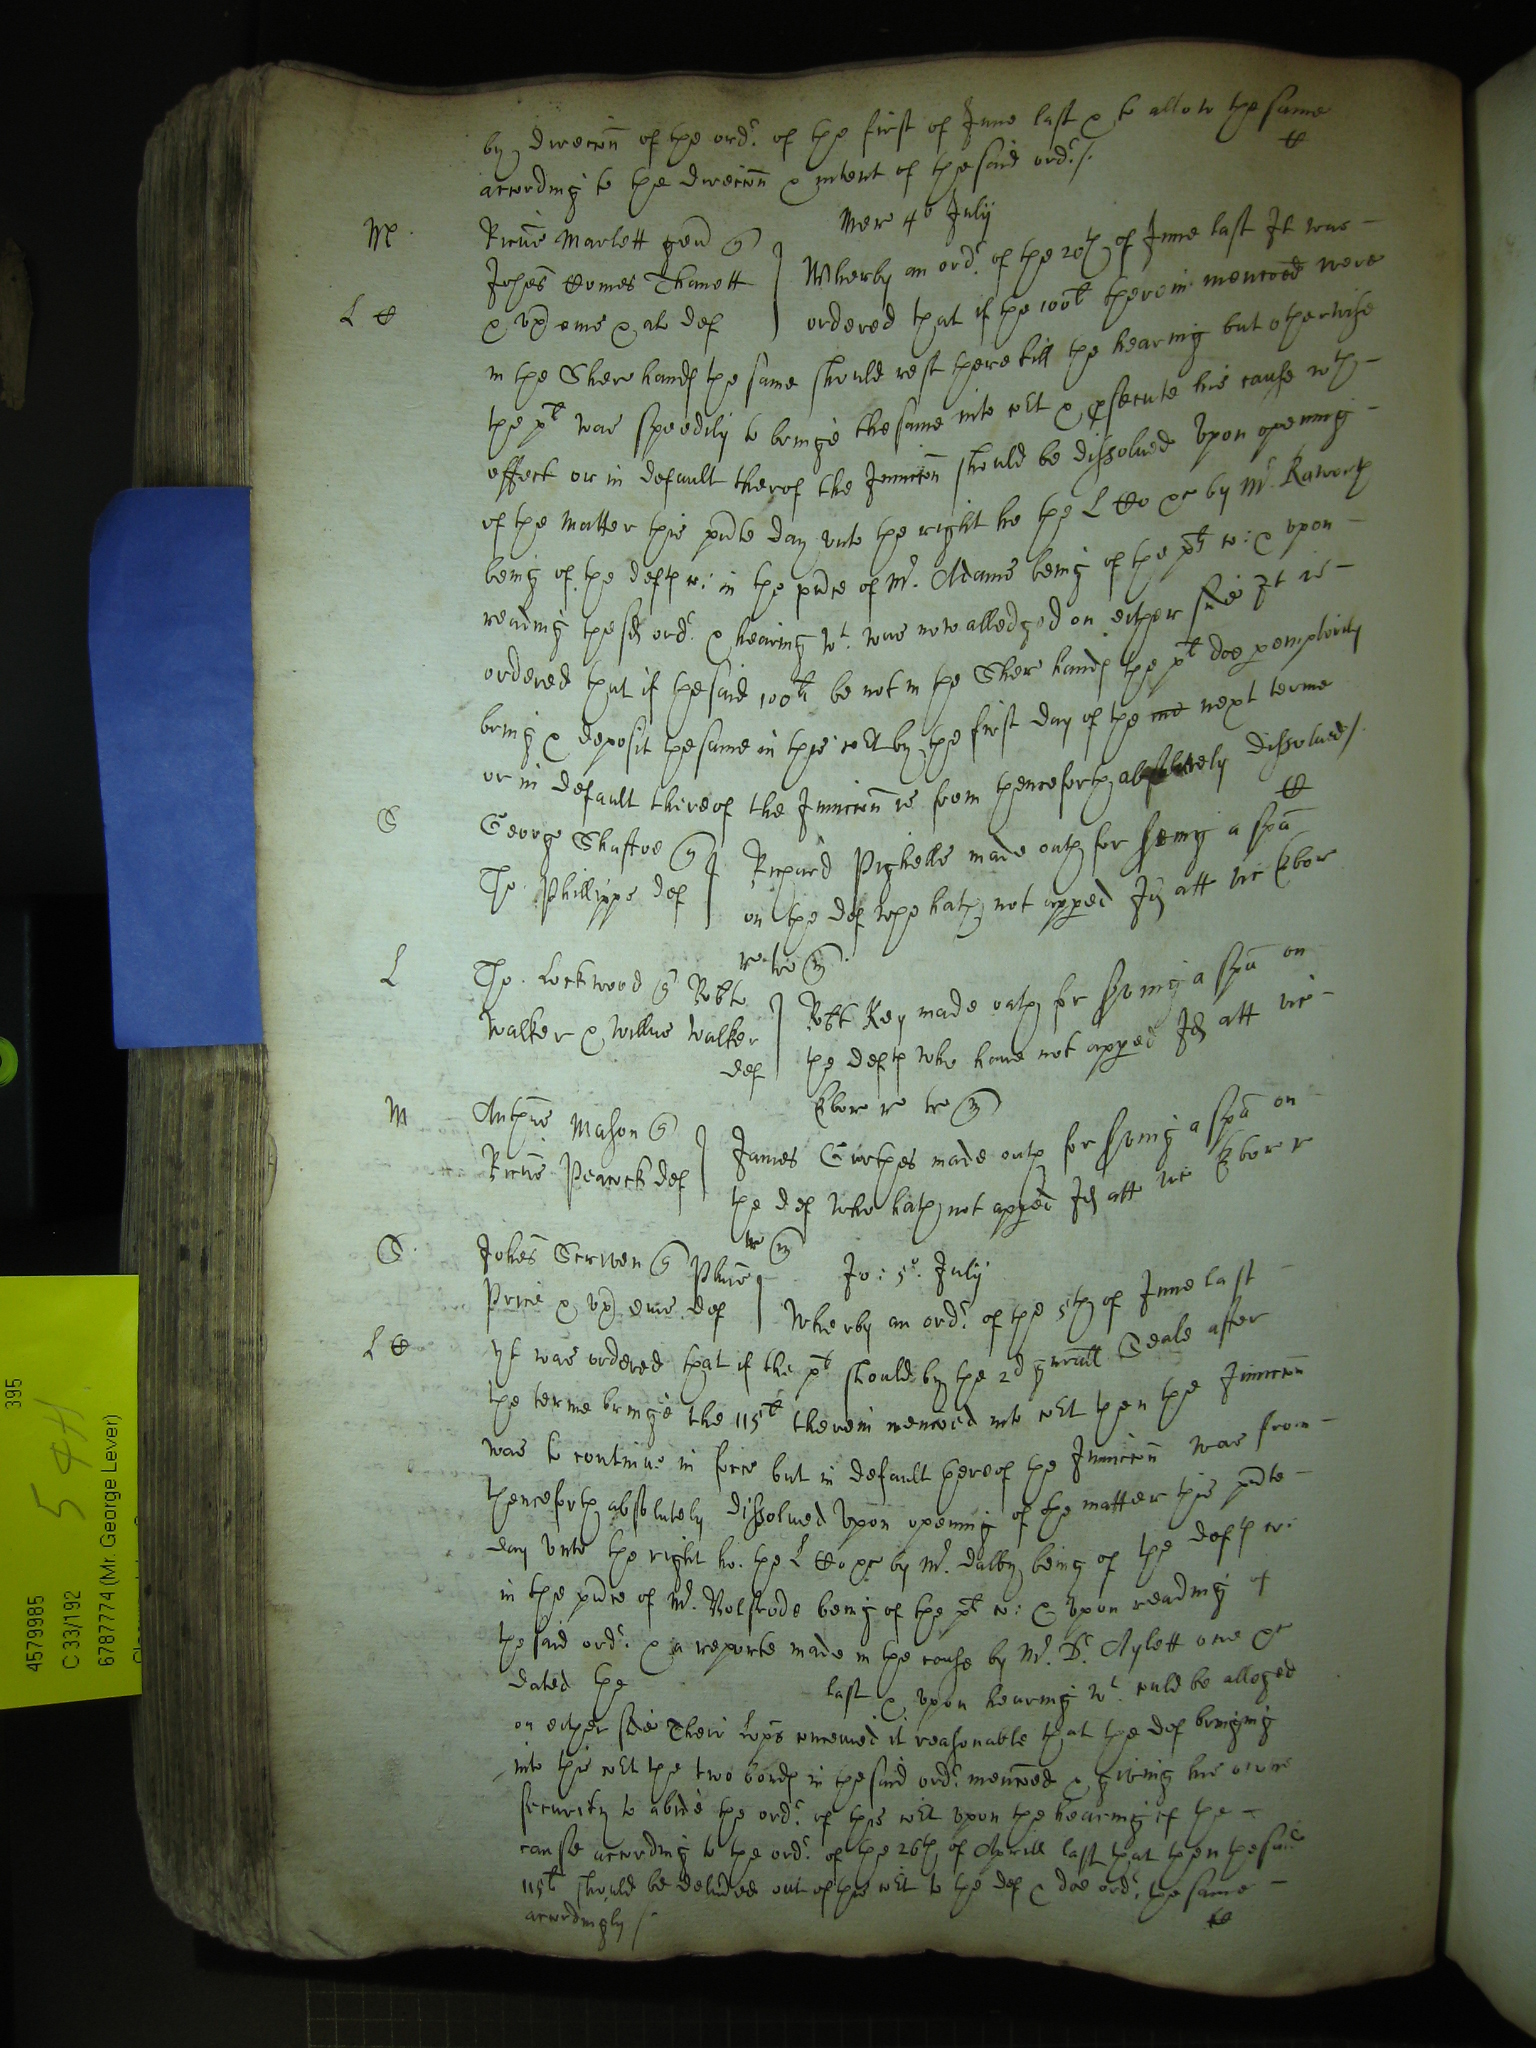 by direccon of the ordr. of the first of June last & to allow the same
according to the direccon & intent of the said ordr./.
Mer 4o July
M.
Ricus Marlett gen q
Johes Homes Thanett
& ux eius & al def
L H
Wherby an ordr. of the 20th of June last It was
ordered that if the 100li therein menconed were
in the Sher hands the same should rest there till the hearing but otherwise
the plt was speedily to bringe the same into cort & psecute his cause wth
effect or in default therof the Iniuncon should be dissolued Upon opening
of the matter this pnte day unto the right ho the L Ho &c by Mr.
being of the defts co: in the pnce of Mr. Adams being of the plts co: & upon
reading the sd ordr. & hearing wt. was now alledged on either side It is
ordered that if the said 100li be not in the Sher hands the plt doe pemptorily
bring & deposit the same in this cort by the first day of the next terme
or in default thereof the Iniuncon is from thenceforth absolutely dissolued/.
S
George Shaftoe q
Tho. Phillipps def
Richard Pighells made oath for seruing a spa
on the def whoe hath not apped Id att vic Ebor
L
Tho. Lockwood q Robto
Walker & Willus Walker
def
Robt Key made oath for seruing a spa on
the defts who haue not apped Id att vic
Ebor
M
Anthus Mason q
Ricus Peacock def
James made oath for seruing a spa on
the def who hath not apped Id att vic Ebor r
S.
Johes Scriven q Phus
Price & ux eius def
L H
Jo: 5o. July
Wherby an ordr. of the 5th of June last
yt was ordered that if the plt should by the 2d gnrall Seale after
the terme bringe the 115li therein menconed into cort then the Iniuncon
was to continue in force but in default hereof the Iniuncon was from
thenceforth absolutely dissolued Upon opening of the matter this pnte
day unto the right ho. the L Ho &c by Mr. Dalby being of the defts co:
in the pnce of Mr. Bolstrode being of the plt co: & upon reading of
the said ordr. & a reporte made in the cause by Mr. Dr. Aylett one &c
dated the last & upon hearing wt. could be alleged
on either side Their Lops conceiued it reasonable that the def bringing
into this cort the two bonds in the said ordr. menconed & giving his owne
security to abide the ordr. of this cort upon the hearing of the
cause according to the ordr. of the 26th of Aprill last that then the said
115li should be deliuered out of this cort to the def & doe ordr. the same
accordingly /.
395
5 411
4579985
C 33/192
6787774 (Mr. George Lever)